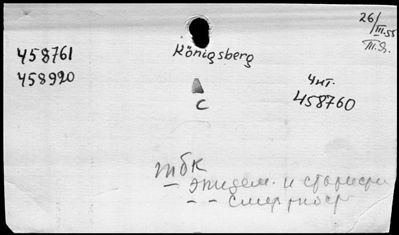 26/III.55
Königsberg
458761
458920
C
Чит.
458760
тбк
- эпидем. и статист
- - смертност